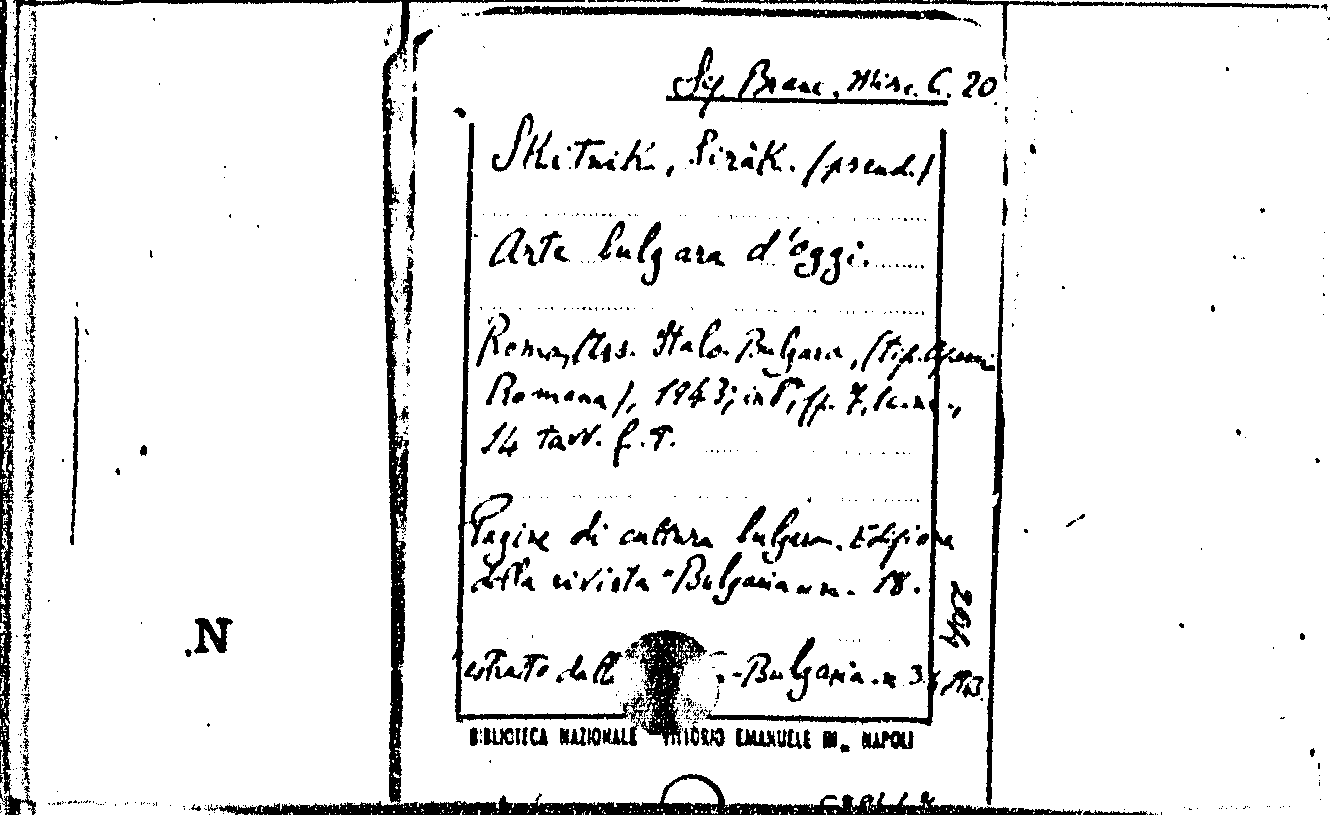 Branc. Misc. C. 20
Skitnik, Siràk. (pseud.)
Arte bulgara d'oggi.
Roma, Ass. Italo-Bulgara, (tip.
Romana), 1943; in 8°, pp. 7,
14 tavv. f. t.
Pagine di cultura bulgara. Edizione
della rivista "Bulgaria" n. 18.
204
estratto dall -Bulgaria. n 3
BIBLIOTECA NAZIONALE VITTORIO EMANUELE III. NAPOLI
.N